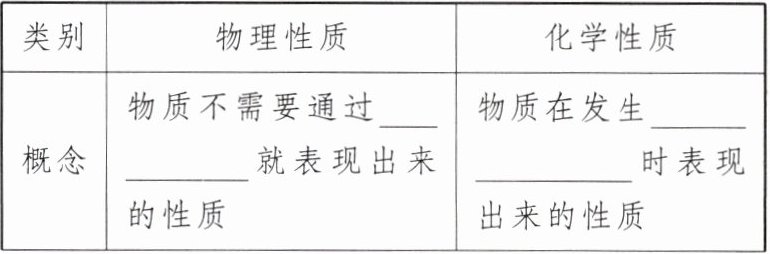 类别 物理性质 化学性质
概念
物质不需要通过____
________就表现出来
的性质
物质在发生______
__________时表现
出来的性质